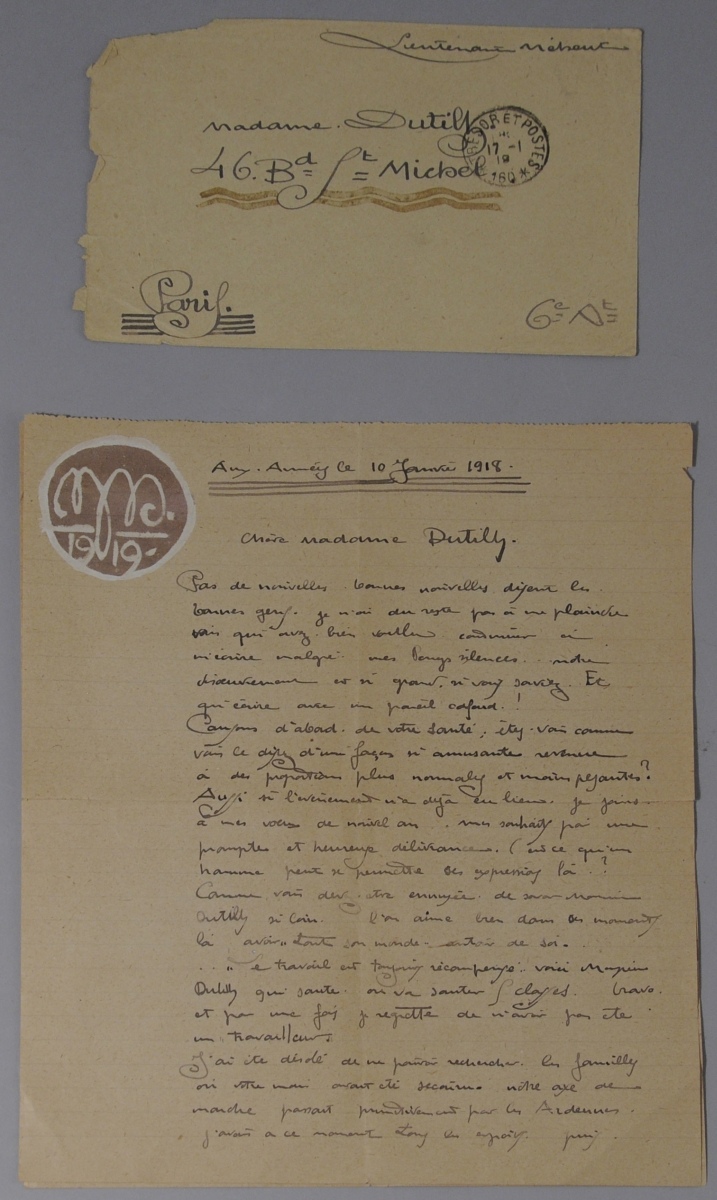 Lieutenant Méheut
Madame. Dutilly
46. Bd St Michel
TRESOR ET POSTES
17 -1
19
*160*
Paris.
6e At
MM.
1919-
Aux. Armées le 10 Janvier 1918.
Chère Madame Dutilly.
Pas de nouvelles bonnes nouvelles disent les
bonnes gens. je n'ai du reste pas à me plaindre
vous qui avez bien voulu continuer à
m'écrire malgré mes longs silences... notre
désœuvrement est si grand, si vous saviez. Et
qu'écrire avec un pareil cafard.!
Causons d'abord. de votre santé; êtes-vous comme
vous le dites d'une façon si amusante revenue
à des proportions plus normales et moins pesantes?
Aussi si l'évènement n'a déjà eu lieu. je joins
à mes vœux de nouvel an.. mes souhaits pour une
prompte et heureuse délivrance. (est ce qu'un
homme peut se permettre ces expressions là.?
Comme vous devez être ennuyée de savoir Monsieur
Dutilly si loin. l'on aime bien dans ces moments
là avoir tout son monde autour de soi.
.. "Le travail est toujours récompensé" voici Monsieur
Dutilly qui saute. ou va sauter classes. bravo.
et pour une fois je regrette de n'avoir pas été
un travailleur.
J'ai été désolé de ne pouvoir rechercher les familles
où votre mari avait été secouru. notre axe de
marche passait primitivement par les Ardennes.
j'avais à ce moment tous les espoirs. puis.